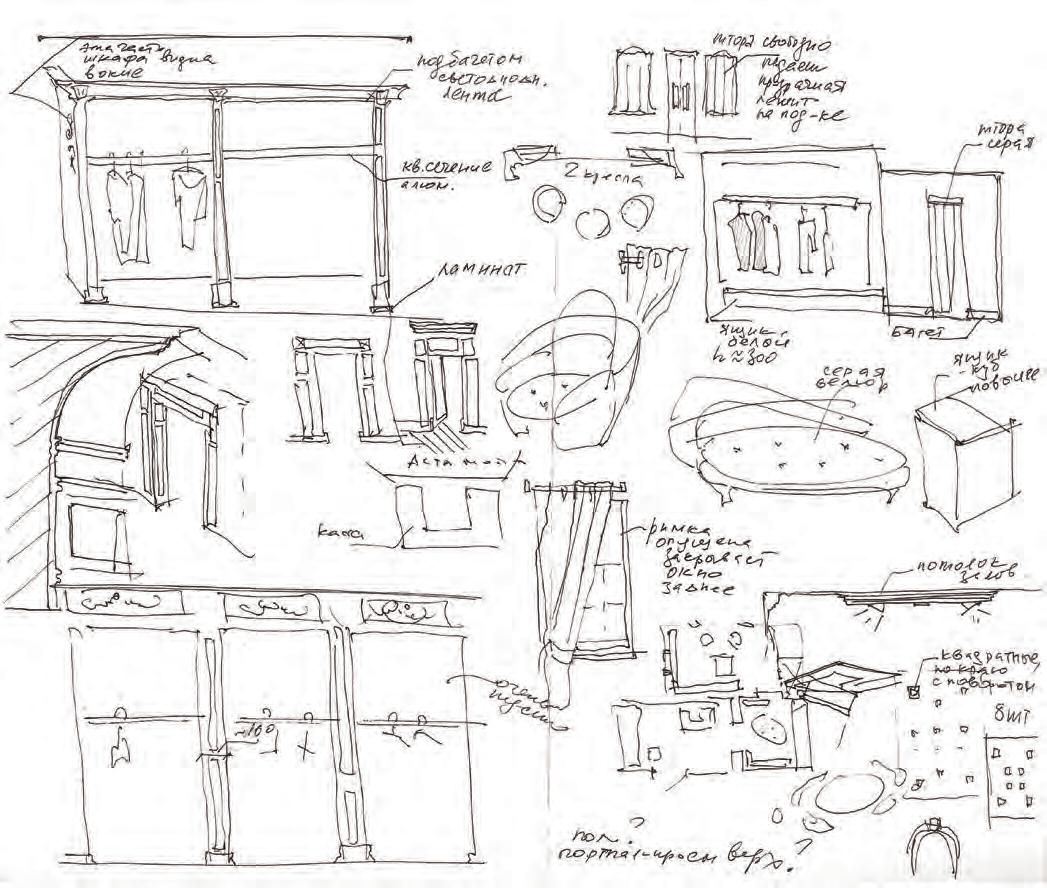 эта часть
шкафа видна
в окне
под багетом
светодиодн.
лента
кв. сечение
алюм.
ламинат
штора свободно
падает
прозрачная
лежит
на под-ке
2 кресла
штора
серая
ящик
белый
h≈300
багет
серая
велюр
ящик
куб
каса
римка
опущена
закрывает
окно
заднее
потолок
залов
квадратные
по краю
с поворотом
8шт
очень
~100
пол?
портал-кроем верх?